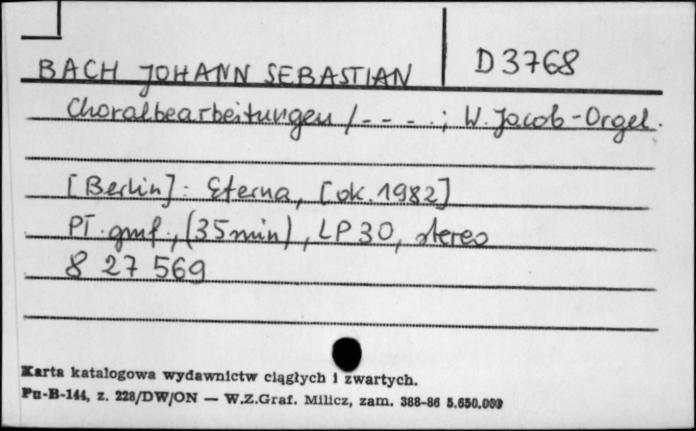 D 3768
BACH JOHANN SEBASTIAN
Choralbearbeitungen / - - - . ; W. Jacob - Orgel.
[Berlin] : Eterna, [ok. 1982]
Pł. gmf., (35 min), LP 30, stereo
8 27 569
Karta katalogowa wydawnictw ciągłych i zwartych.
Pu-B-144, z. 228/DW/ON — W.Z.Graf. Milicz, zam. 388-86 5.650.000